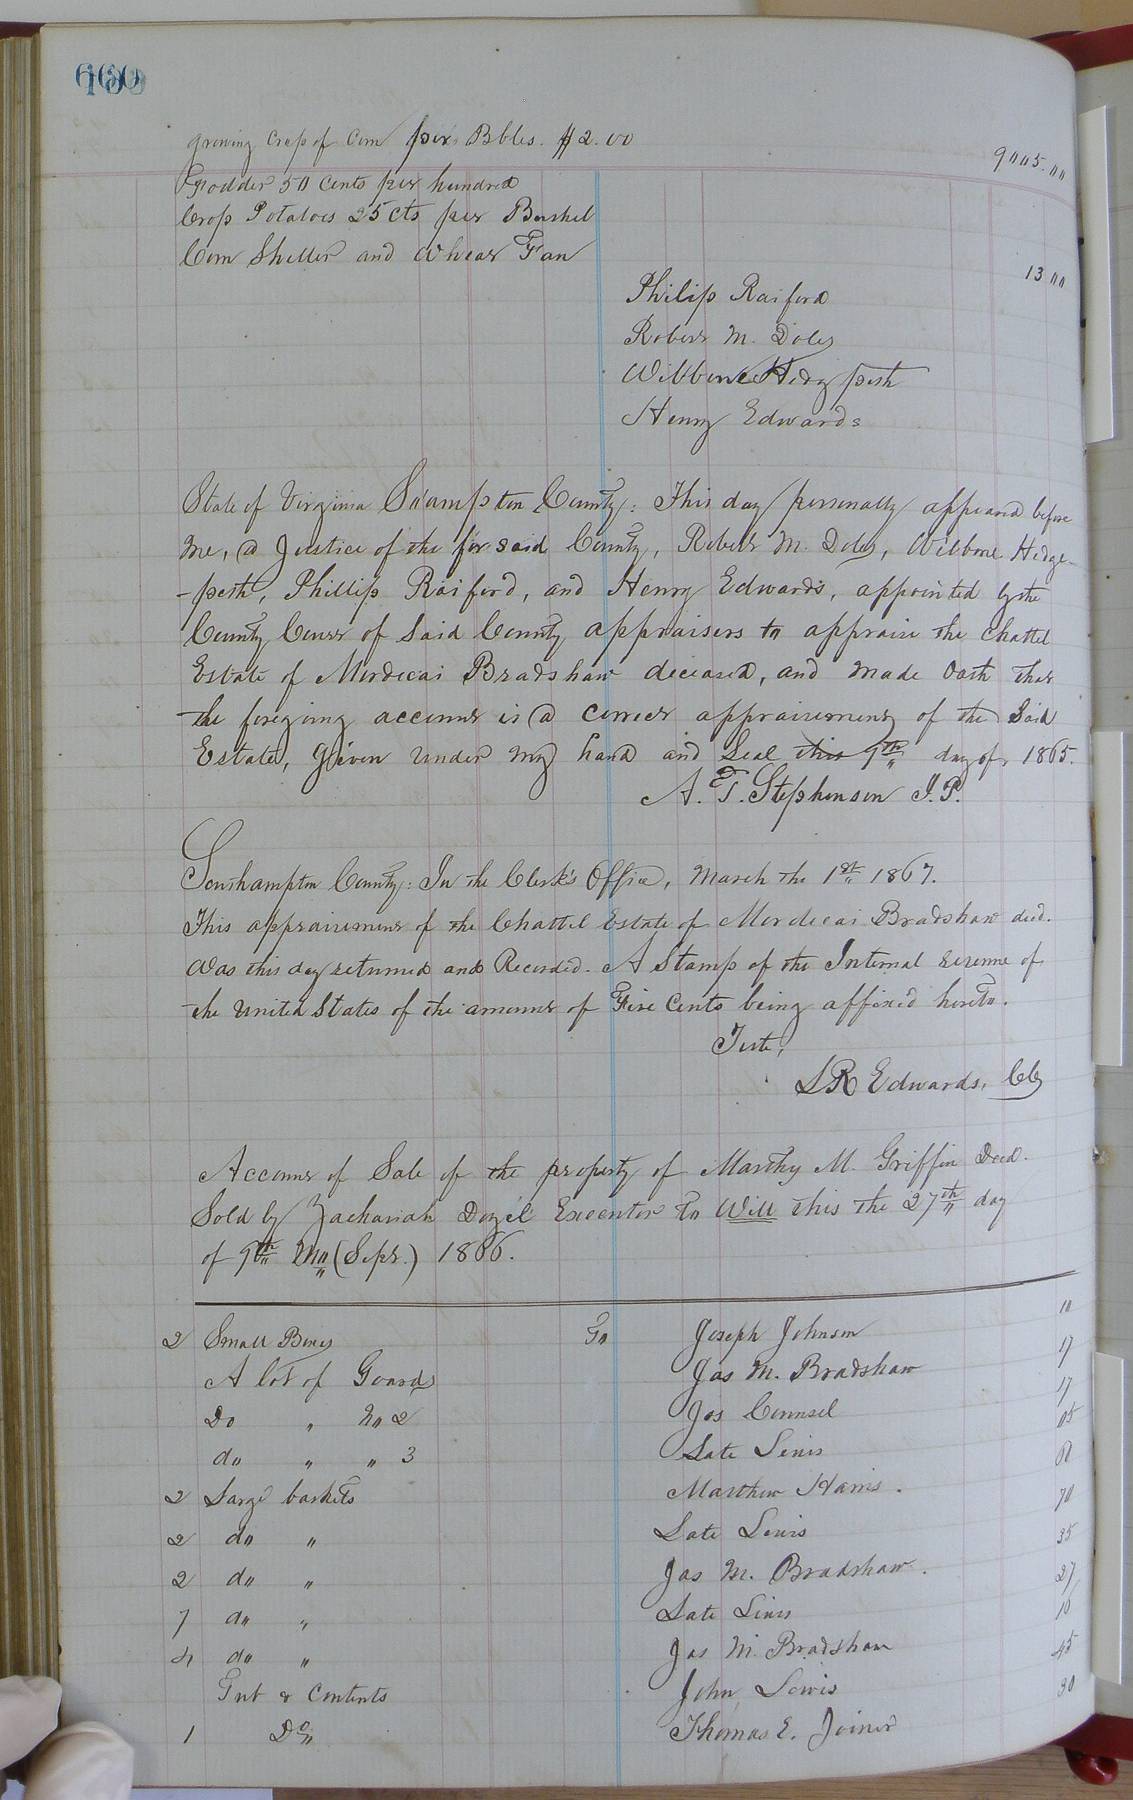 growing Crop of Corn per Bbles. $2.00 9005.00
Fodder 50 Cents per hundred
Crop Potatoes 25 cts per Bushel
Corn Sheller and Wheat Fan 13 00
Philip Raiford
Robert M. Doles
Wilborne Hedgpeth
Henry Edwards
State of Virginia Southampton County: This day personally appeared before
me, a Justice of the for said County, Robert M. Doles, Wilborne Hedge-
-peth, Phillip Raiford, and Henry Edwards, appointed by the
County Court of Said County appraisers to appraise the Chattel
Estate of Mordecai Bradshaw deceased, and made Oath that
the foregoing account is a correct appraisement of the Said
Estate, Given under my hand and Seal this 9th day of, 1865.
A. T. Stephenson J. P.
Southampton County: In the Clerk's Office, March the 1st 1867.
This appraisement of the Chattel Estate of Mordecai Bradshaw decd.
Was this day returned and Recorded. A Stamp of the Internal revenue of
the United States of the amount of Five Cents being affixed hereto.
Teste,
L R Edwards, Clk
Account of Sale of the property of Marthy M. Griffin Decd.
Sold by Zachariah Doyel Executor to Will this the 27th day
of 9th Mo (Sept.) 1866.
2 Small Boxes To Joseph Johnson 10
A lot of Gourds Jas M. Bradshaw 17
Do " No 2 Jos Counsel 17
do " " 3 Late Lewis 05
2 Large baskets Matthew Harris. 60
2 do " Late Lewis 70
2 do " Jas M. Bradshaw. 35
7 do " Late Lewis 27
4 do " Jas M. Bradshaw 10
Tub & Contents John Lewis 45
1 Do " Thomas E. Joiner 30